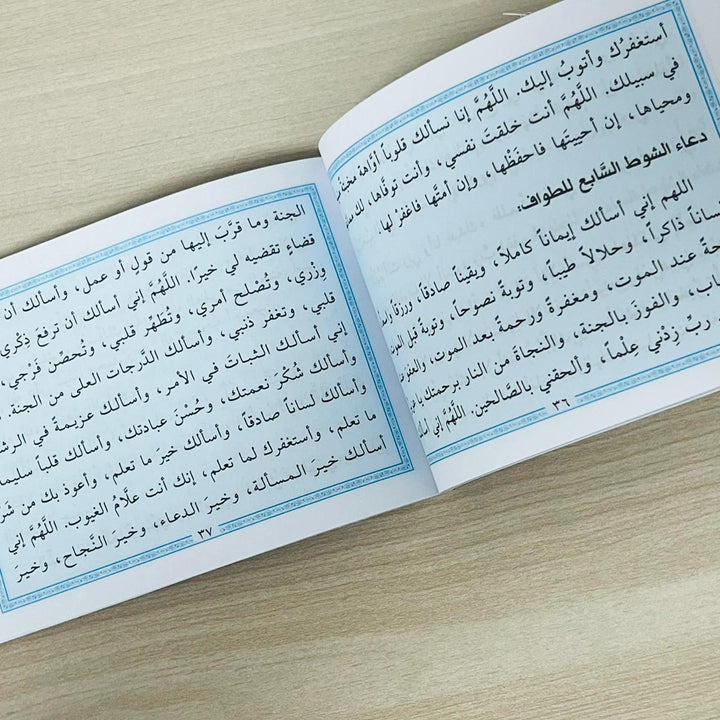 أستغفرُك وأتوبُ إليك. اللَّهُمَّ إنا نسألك قلوباً أوَّاهة
في سبيلك. اللَّهُمَّ أنت خلقتَ نفسي، وأنت توفَّاها، لك
ومحياها، إن أحييتَها فاحفَظْها، وإن أمتَّها فاغفرْ لها.
دعاء الشوط السَّابع للطواف:
اللهم إني أسألك إيماناً كاملاً، ويقيناً صادقاً، ورزقاً
ذاكراً، وحلالاً طيباً، وتوبةً نصوحاً، وتوبةً قبل
عند الموت، ومغفرةً ورحمةً بعد الموت،
والفوزَ بالجنة، والنجاةَ من النار برحمتك يا
ربِّ زِدْني عِلْماً، وألحقني بالصَّالحين. اللَّهُمَّ إني
٣٦
الجنة وما قرَّبَ إليها من قولٍ أو عمل، وأسألك أن
قضاءٍ تقضيه لي خيرًا. اللَّهُمَّ إني أسألك أن ترفعَ ذِكْري
وِزْري، وتُصْلح أمري، وتُطَهِّر قلبي، وتُحصِّن فَرْجي،
قلبي، وتغفر ذنبي، وأسألك الدَّرجات العلى من الجنة
إني أسألك الثباتَ في الأمر، وأسألك عزيمةً في
وأسألك شُكْرَ نعمتك، وحُسْنَ عبادتك، وأسألك قلباً
وأسألك لساناً صادقاً، وأسألك خيرَ ما تعلم، وأعوذ بك من شرِّ
ما تعلم، وأستغفرك لما تعلم، إنك أنت علَّامُ الغيوب. اللَّهُمَّ إني
أسألك خيرَ المسألة، وخيرَ الدعاء، وخيرَ النَّجاح، وخيرَ
٣٧